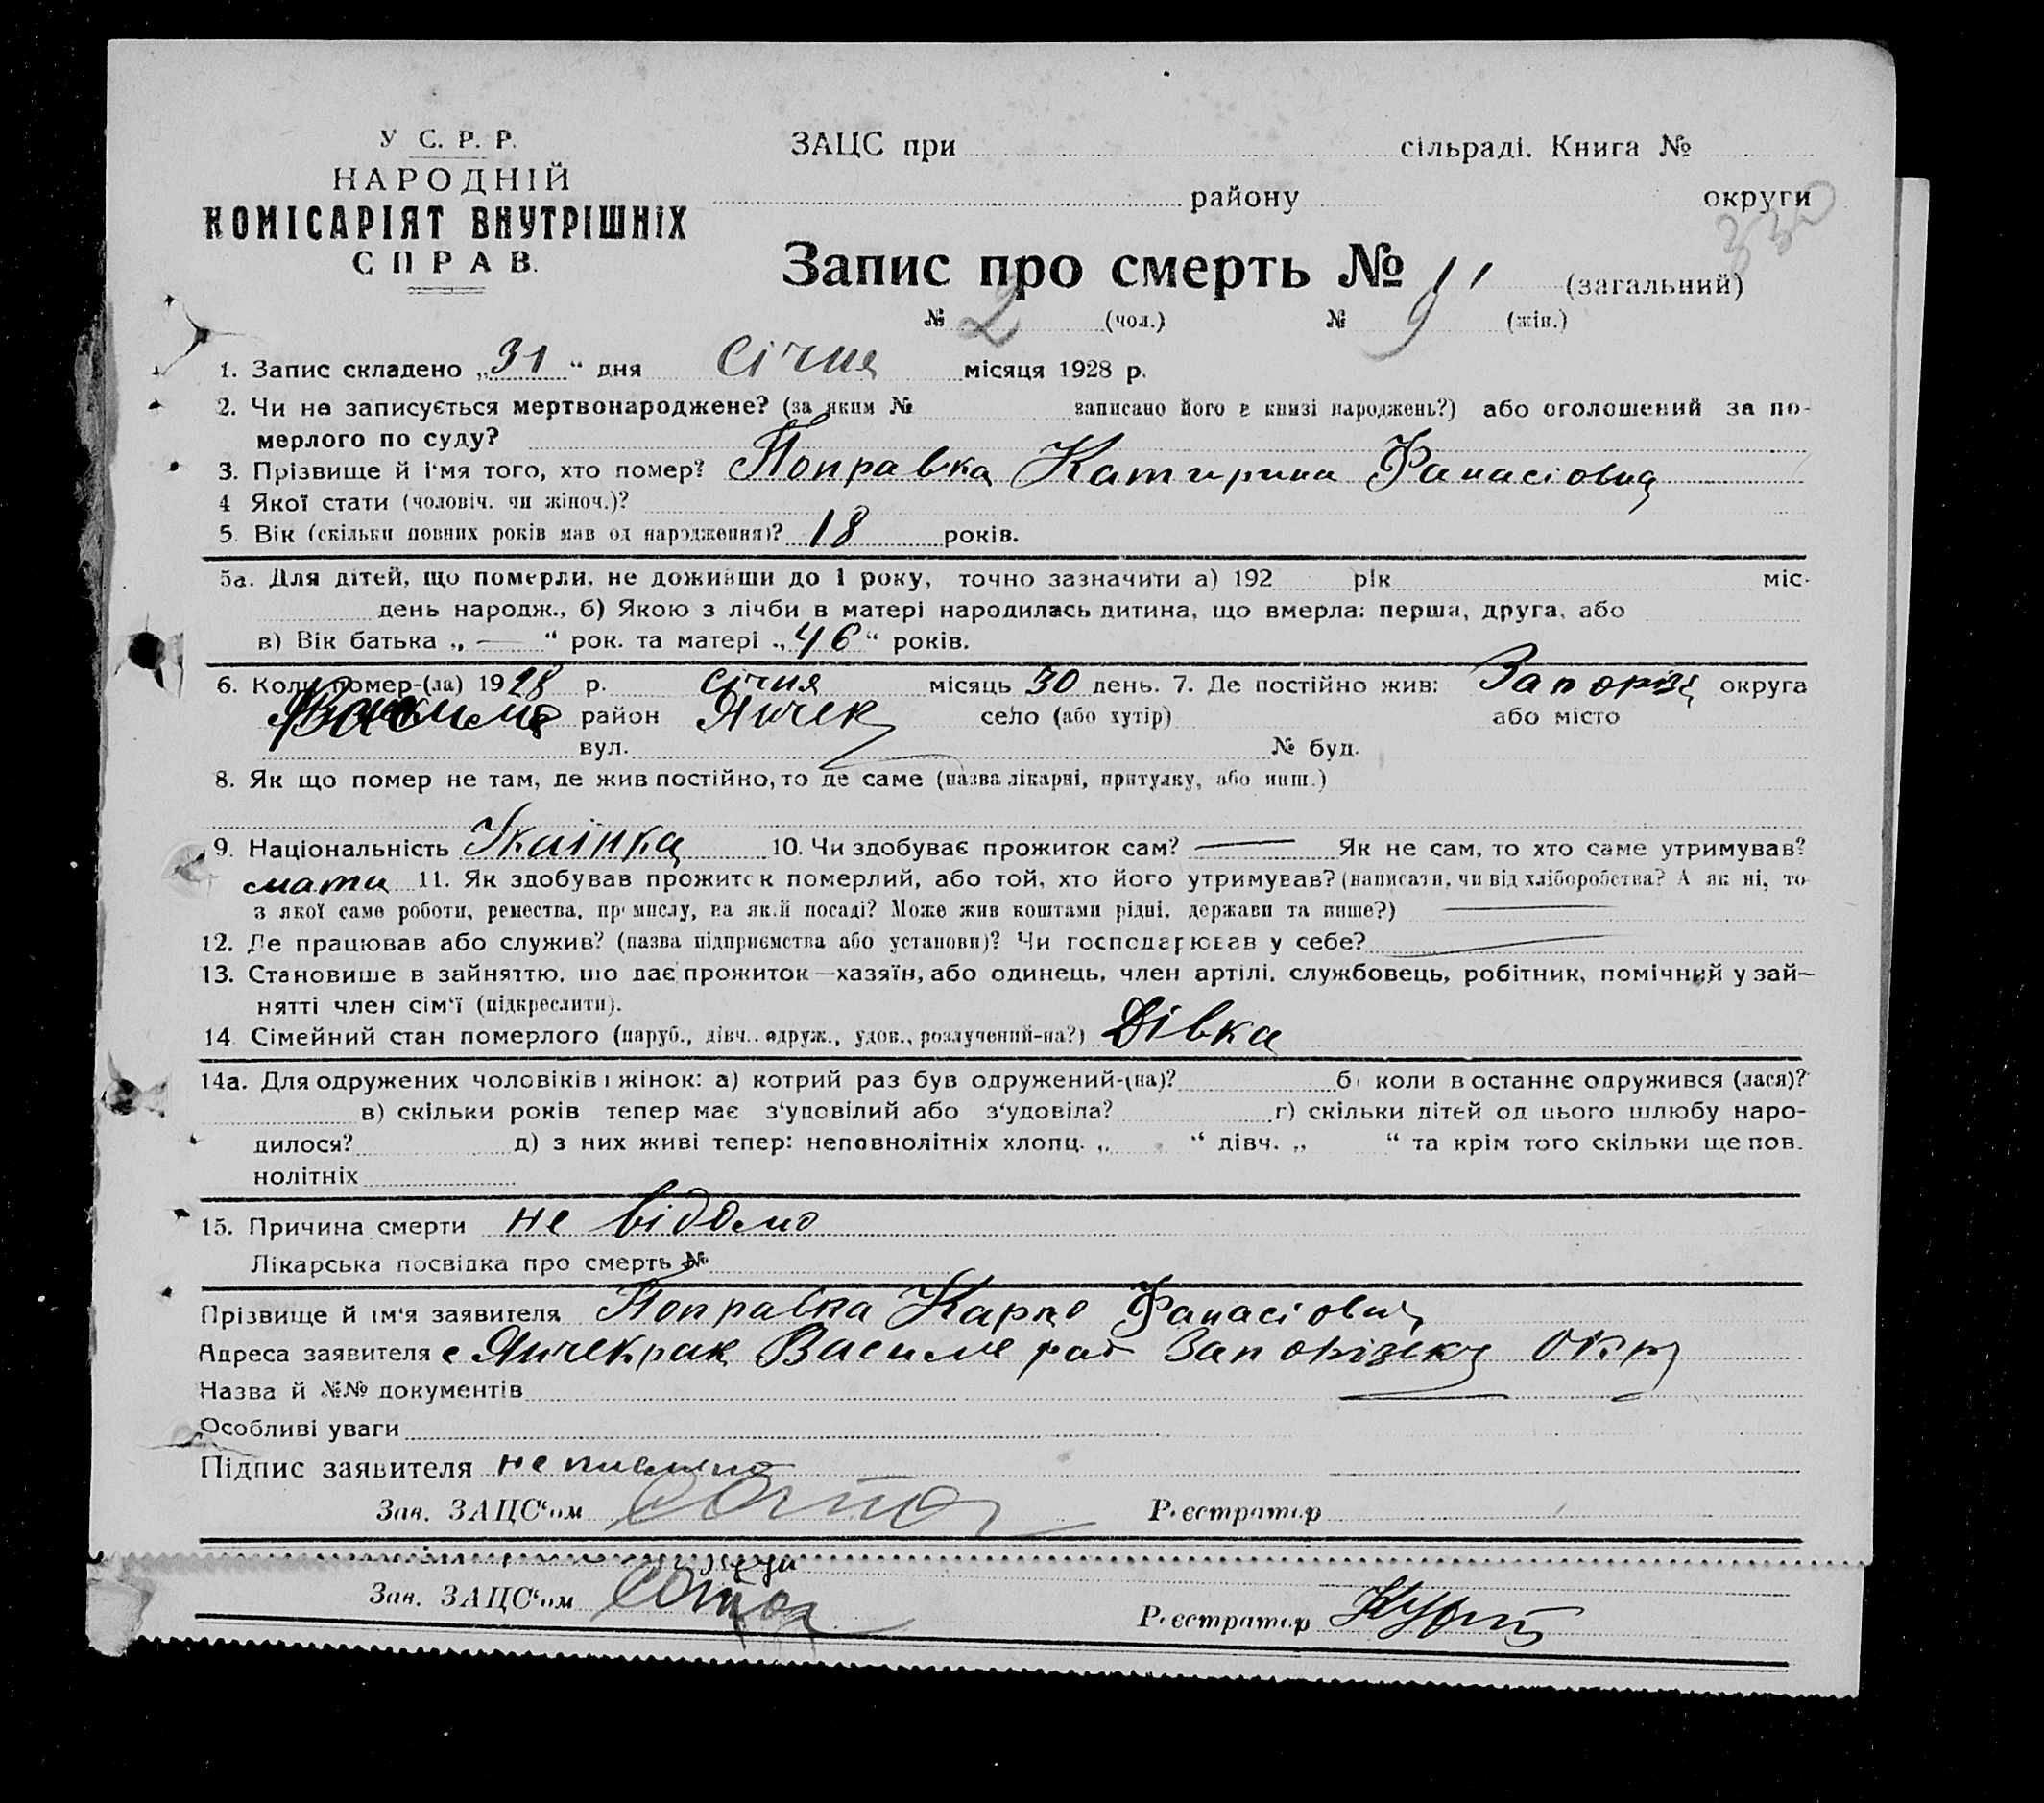 У С. Р. Р.
НАРОДНІЙ
КОМІСАРІЯТ ВНУТРІШНІХ
СПРАВ.
ЗАЦС при сільраді. Книга №
району округи
330
Запис про смерть № 11 (загальний)
№ 2 (чол.) № 9 (жін.)
1. Запис складено „31“ дня січня місяця 1928 р.
2. Чи не записується мертвонароджене? (за яким № записано його в книзі народжень?) або оголошений за по-
мерлого по суду?
3. Прізвище й ім'я того, хто помер? Поправка Катирина Фанасіовна
4 Якої стати (чоловіч. чи жіноч.)?
5. Вік (скільки повних років мав од народження)? 18 років.
5а. Для дітей, що померли, не доживши до 1 року, точно зазначити а) 192 рік міс.
день народж., б) Якою з лічби в матері народилась дитина, що вмерла: перша, друга, або
в) Вік батька „ — “ рок. та матері „46“ років.
6. Коли помер-(ла) 1928 р. січня місяць 30 день. 7. Де постійно жив: Запоріз округа
Василів район Янчек село (або хутір) або місто
вул. № буд.
8. Як що помер не там, де жив постійно, то де саме (назва лікарні, притулку, або инш.)
9. Національність Укаінка 10. Чи здобуває прожиток сам? — Як не сам, то хто саме утримував?
мати 11. Як здобував прожиток померлий, або той, хто його утримував? (написати, чи від хліборобства? А як ні, то
з якої саме роботи, ремества, промислу, на якій посаді? Може жив коштами рідні, держави та инше?) —
12. Де працював або служив? (назва підприємства або установи)? Чи господарював у себе? —
13. Становище в зайняттю, що дає прожиток—хазяїн, або одинець, член артілі, службовець, робітник, помічний у зай-
нятті член сім'ї (підкреслити).
14. Сімейний стан померлого (паруб., дівч., одруж., удов., розлучений-на?) Дівка
14а. Для одружених чоловіків і жінок: а) котрий раз був одружений-(на)? б) коли в останнє одружився (лася)?
в) скільки років тепер має з'удовілий або з'удовіла? г) скільки дітей од цього шлюбу наро-
дилося? д) з них живі тепер: неповнолітніх хлопц. „ “ дівч. „ “ та крім того скільки ще пов.
нолітніх
15. Причина смерти не відомо
Лікарська посвідка про смерть №
Прізвище й ім'я заявителя Поправка Карпо Фанасіович
Адреса заявителя с Янчекрак Василів рай Запорізьку окр
Назва й №№ документів
Особливі уваги
Підпис заявителя не письмен
Зав. ЗАЦС'ом Реєстратор
Зав. ЗАЦС'ом Реєстратор